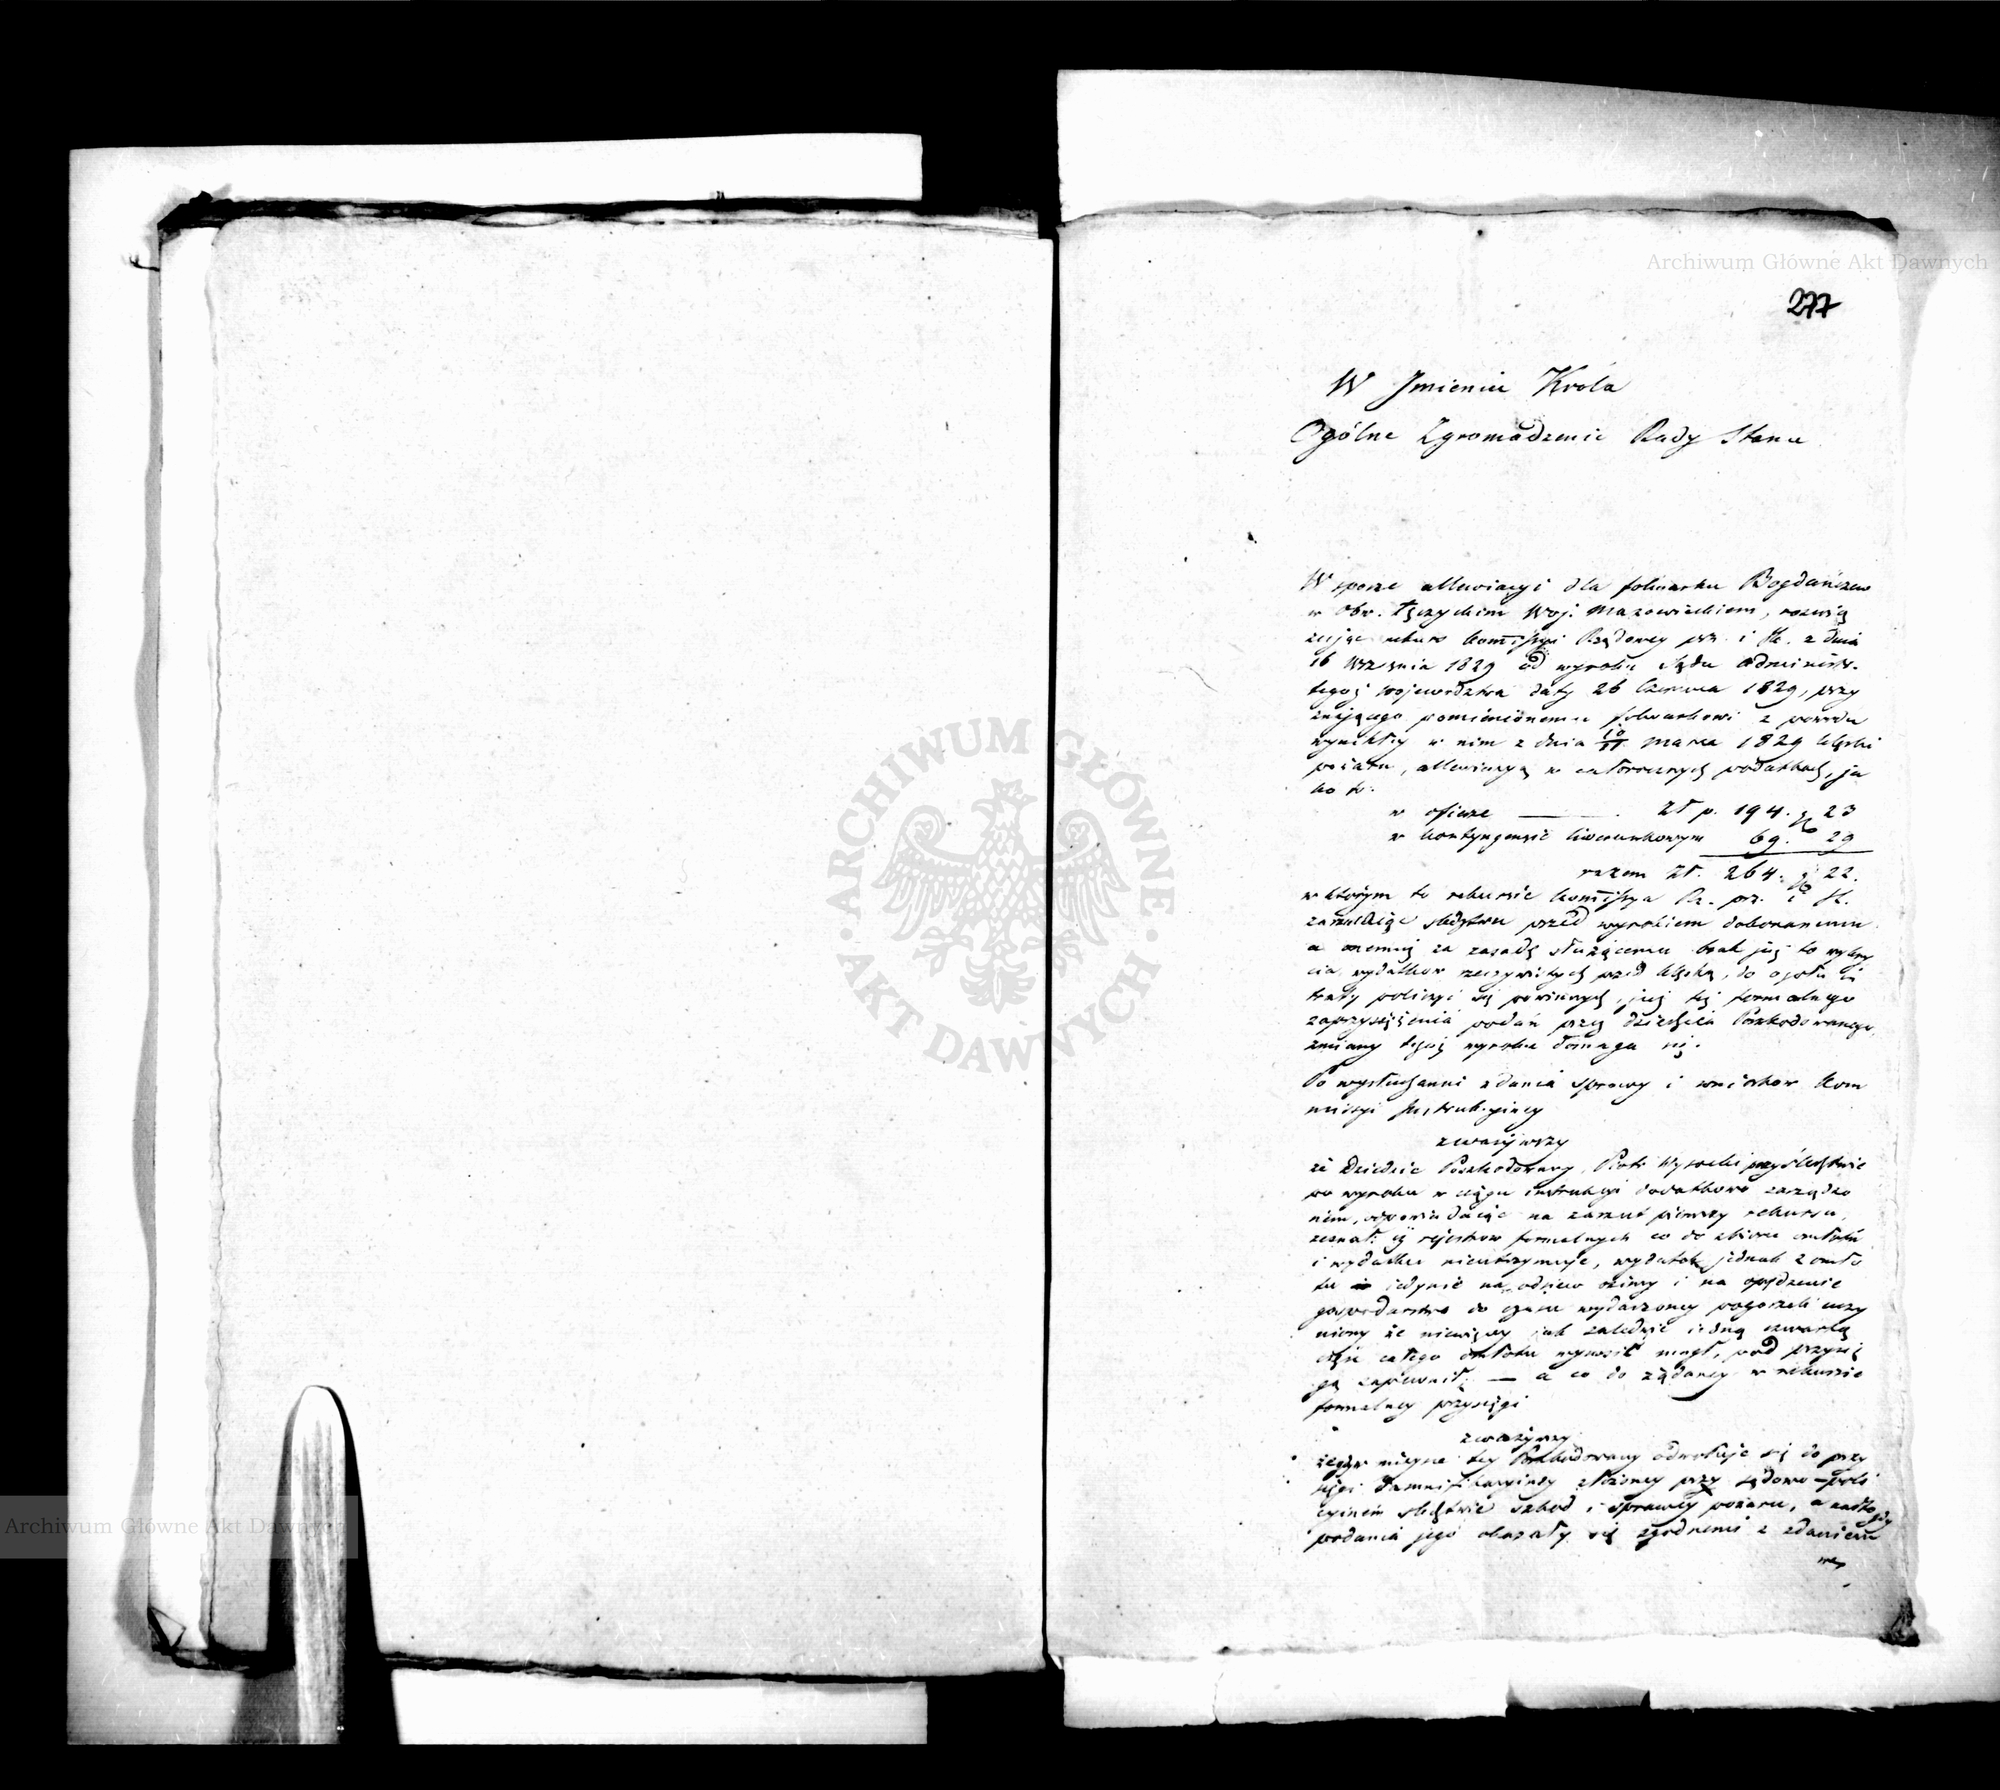 277
W Jmieniu Króla
Ogólne Zgromadzenie Rady Stanu
W sporze allewiacyi dla folwarku Bogdańczew
w Obw. Łęczyckim Woj. Mazowieckiem, rozwią
zując rekurs Kommissyi Rządowey prz. i Sk. z dnia
16 Września 1829 od wyroku Sądu administr.
tegoż Województwa daty 26 Czerwca 1829, przy
znającego pomienionemu folwarkowi z powodu
wynikłey w nim z dnia 10/11 Marca 1829 klęski
pożaru, allewiacyą w całorocznych podatkach, ja
ko to:
w ofierze Zł p. 194. gr 23
w kontyngensie liwerunkowym 69. 29
razem Zł. 264. gr 22.
w którym to rekursie Kommissya Rz. prz. i Sk.
zarzucając śledztwu przed wyrokiem dokonanemu
a onemuż za zasadę służącemu brak już to wykry
cia wydatków rzeczywistych przed klęską, do ogółu
straty policzyć się powinnych, już też formalnego
zaprzysiężenia podań przez dziedzica Poszkodowanego,
zmiany tegoż wyroku domaga się.
Po wysłuchaniu zdania sprawy i wniosków Kom
missyi Instrukcyiney
zważywszy
że Dziedzic Poszkodowany Piotr Wysocki przy śledztwie
po wyroku w ciągu instrukcyi dodatkowo zarządzo
nem, odpowiadając na zarzut pierwszy rekursu,
zeznał: iż rejestrów formalnych co do zbioru omłotu
i wydatku nieutrzymuje, wydatek jednak z omło
tu jedynie na odsiew ozimy i na opędzenie
gospodarstwa do czasu wydarzoney pogorzeli uczy
niony że niewięcey jak zaledwie jedną czwartą
część całego omłotu wynosić mógł, pod przysię
gą zapewnił; — a co do żądaney w rekursie
formalney przysięgi
zważywszy
że gdy w mieysce tey Poszkodowany odwołuje się do przy
sięgi damnifikacyiney złożoney przy sądowo-poli
cyinem śledztwie szkód i sprawcy pożaru, a nadto gdy
podania jego okazały się zgodnemi z zdaniem